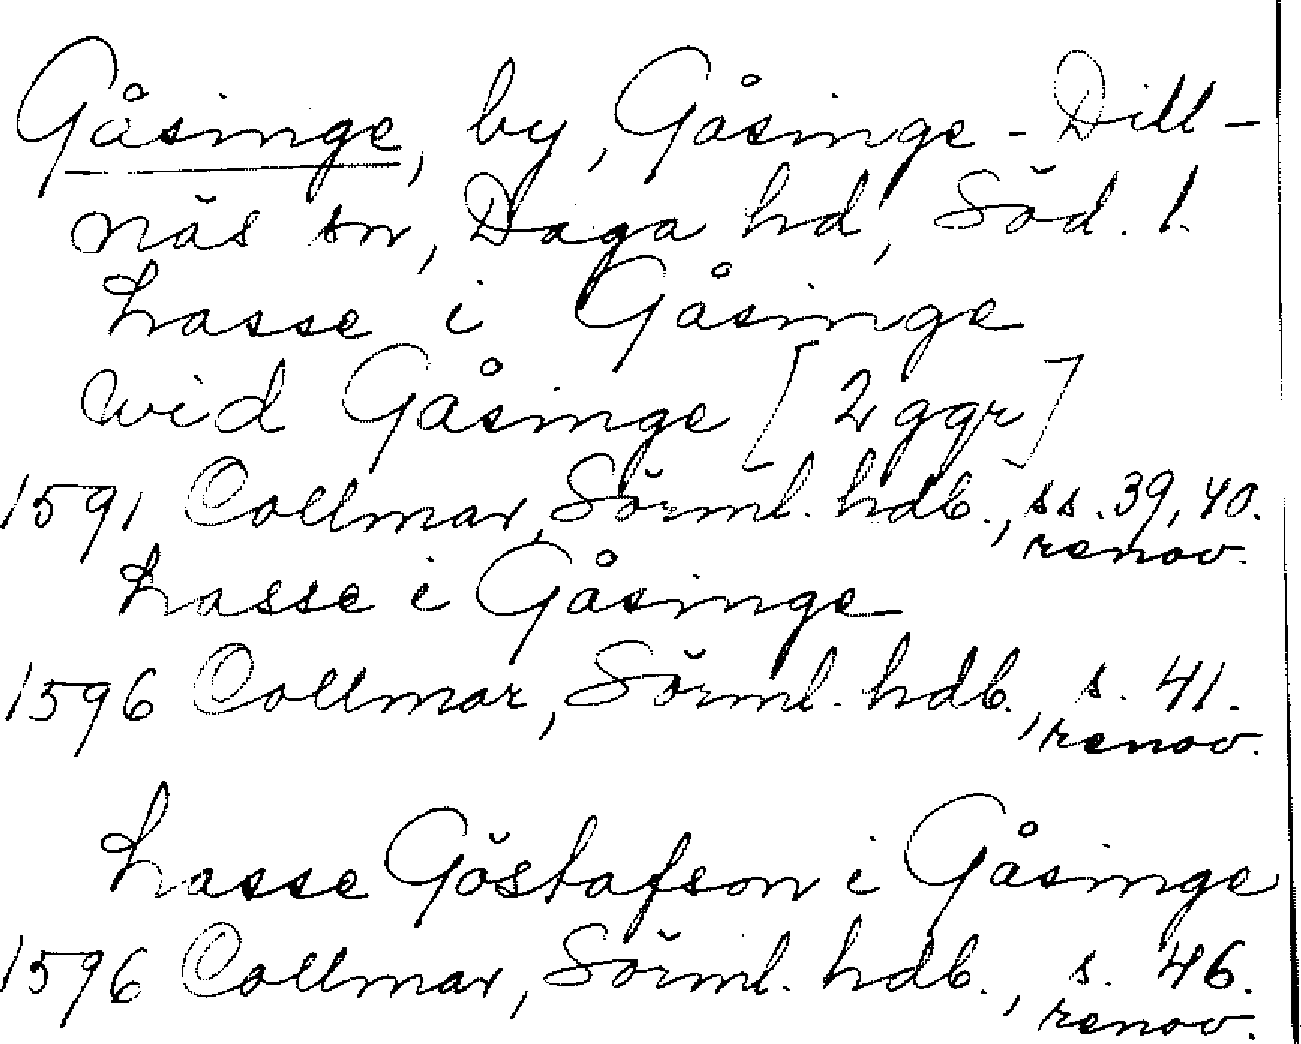 Gåsinge, by, Gåsinge-Dill-
näs sn, Daga hd, Söd. l.
Lasse i Gåsinge
wid Gåsinge [2 ggr]
1591 Collmar, Sörml. hdb., ss. 39, 40.
renov.
Lasse i Gåsinge
1596 Collmar, Sörml. hdb., s. 41.
renov.
Lasse Göstafson i Gåsinge
1596 Collmar, Sörml. hdb., s. 46.
renov.